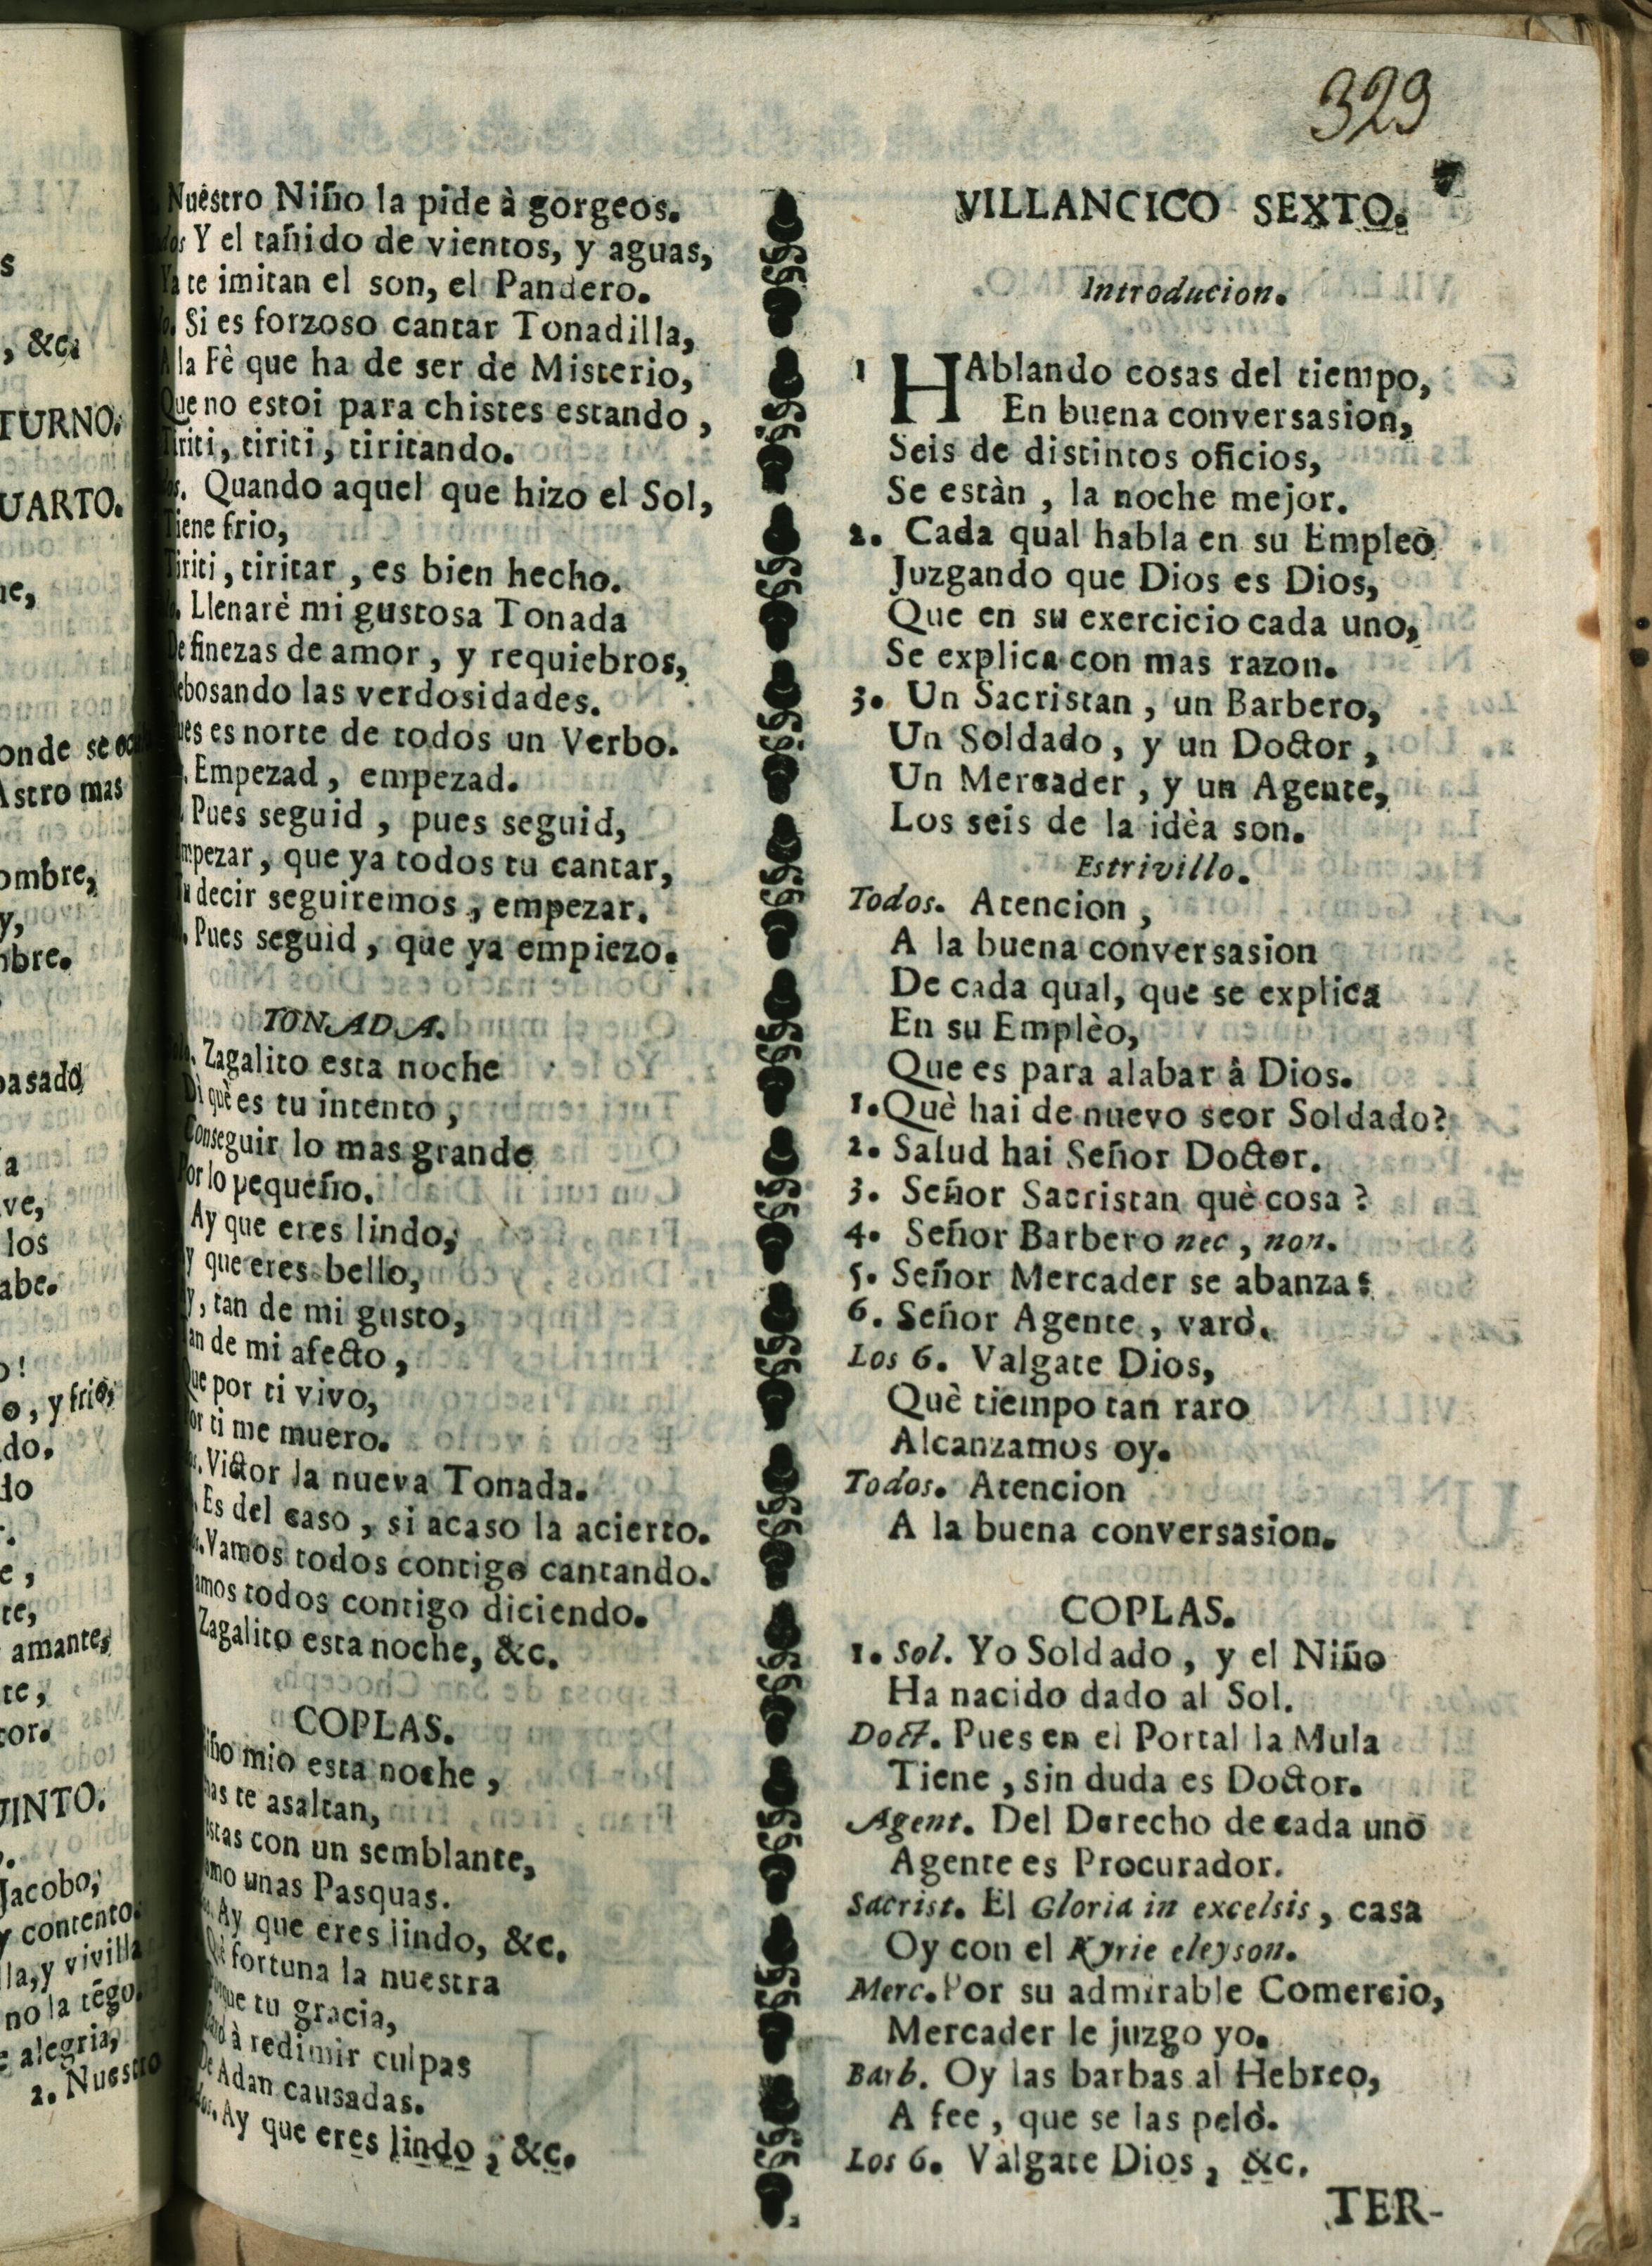 329
Nuestro Niño la pide à gorgeos.
Y el tañido de vientos, y aguas,
Ya te imitan el son, el Pandero.
Si es forzoso cantar Tonadilla,
A la Fè que ha de ser de Misterio,
Que no estoi para chistes estando,
Tiriti, tiriti, tiritando.
Quando aquel que hizo el Sol,
Tiene frio,
Tiriti, tiritar, es bien hecho.
Llenarè mi gustosa Tonada
De finezas de amor, y requiebros,
Rebosando las verdosidades.
Pues es norte de todos un Verbo.
Empezad, empezad.
Pues seguid, pues seguid,
Empezar, que ya todos tu cantar,
Tu decir seguiremos, empezar.
Pues seguid, que ya empiezo.
TONADA.
Zagalito esta noche
Dì què es tu intento,
Conseguir lo mas grande
Por lo pequeño.
Ay que eres lindo,
y que eres bello,
y, tan de mi gusto,
Tan de mi afecto,
Que por ti vivo,
Por ti me muero.
Victor la nueva Tonada.
Es del caso, si acaso la acierto.
Vamos todos contigo cantando.
Vamos todos contigo diciendo.
Zagalito esta noche, &c.
COPLAS.
Niño mio esta noche,
te asaltan,
con un semblante,
Como unas Pasquas.
Ay que eres lindo, &c.
Què fortuna la nuestra
Porque tu gracia,
à redimir culpas
De Adan causadas.
Ay que eres lindo, &c.
VILLANCICO SEXTO.
Introducion.
1 HAblando cosas del tiempo,
En buena conversasion,
Seis de distintos oficios,
Se estàn, la noche mejor.
2. Cada qual habla en su Empleò
Juzgando que Dios es Dios,
Que en su exercicio cada uno,
Se explica con mas razon.
3. Un Sacristan, un Barbero,
Un Soldado, y un Doctor,
Un Mercader, y un Agente,
Los seis de la idèa son.
Estrivillo.
Todos. Atencion,
A la buena conversasion
De cada qual, que se explica
En su Emplèo,
Que es para alabar à Dios.
1. Què hai de nuevo seor Soldado?
2. Salud hai Señor Doctor.
3. Señor Sacristan què cosa?
4. Señor Barbero nec, non.
5. Señor Mercader se abanza:
6. Señor Agente, varò.
Los 6. Valgate Dios,
Què tiempo tan raro
Alcanzamos oy.
Todos. Atencion
A la buena conversasion.
COPLAS.
1. Sol. Yo Soldado, y el Niño
Ha nacido dado al Sol.
Doct. Pues en el Portal la Mula
Tiene, sin duda es Doctor.
Agent. Del Derecho de cada uno
Agente es Procurador.
Sacrist. El Gloria in excelsis, casa
Oy con el Kyrie eleyson.
Merc. Por su admirable Comercio,
Mercader le juzgo yo.
Barb. Oy las barbas al Hebreo,
A fee, que se las pelò.
Los 6. Valgate Dios, &c.
TER-